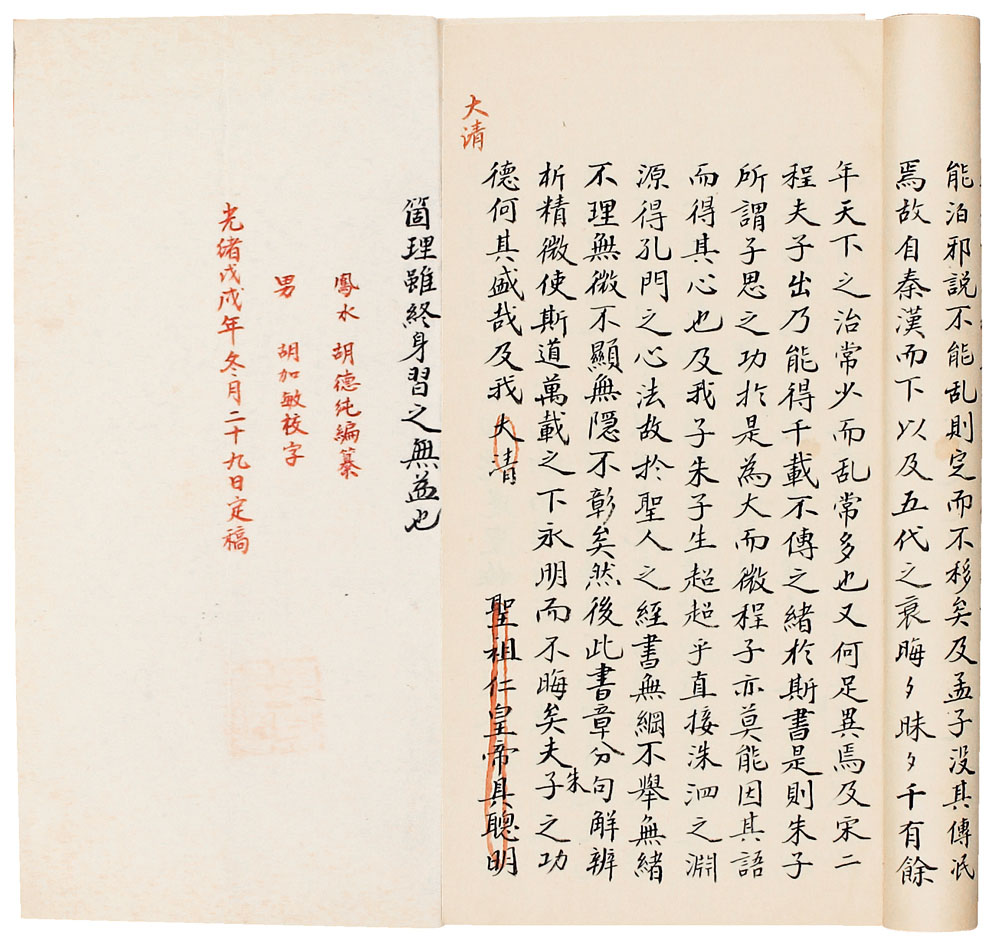 能泊邪説不能乱則定而不移矣及孟子没其傳泯
焉故自秦漢而下以及五代之衰晦々昧々千有餘
年天下之治常少而乱常多也又何足異焉及宋二
程夫子出乃能得千載不傳之緒於斯書是則朱子
所謂子思之功於是為大而微程子亦莫能因其語
而得其心也及我子朱子生超超乎直接洙泗之淵
源得孔門之心法故於聖人之經書無綱不舉無緒
不理無微不顯無隠不彰矣然後此書章分句解辨
析精微使斯道萬載之下永明而不晦矣朱夫子之功
德何其盛哉及我大清
聖祖仁皇帝具聰明
大清
箇理雖終身習之無益也
鳳水 胡德純編纂
男 胡加敏校字
光緒戊戌年冬月二十九日定稿